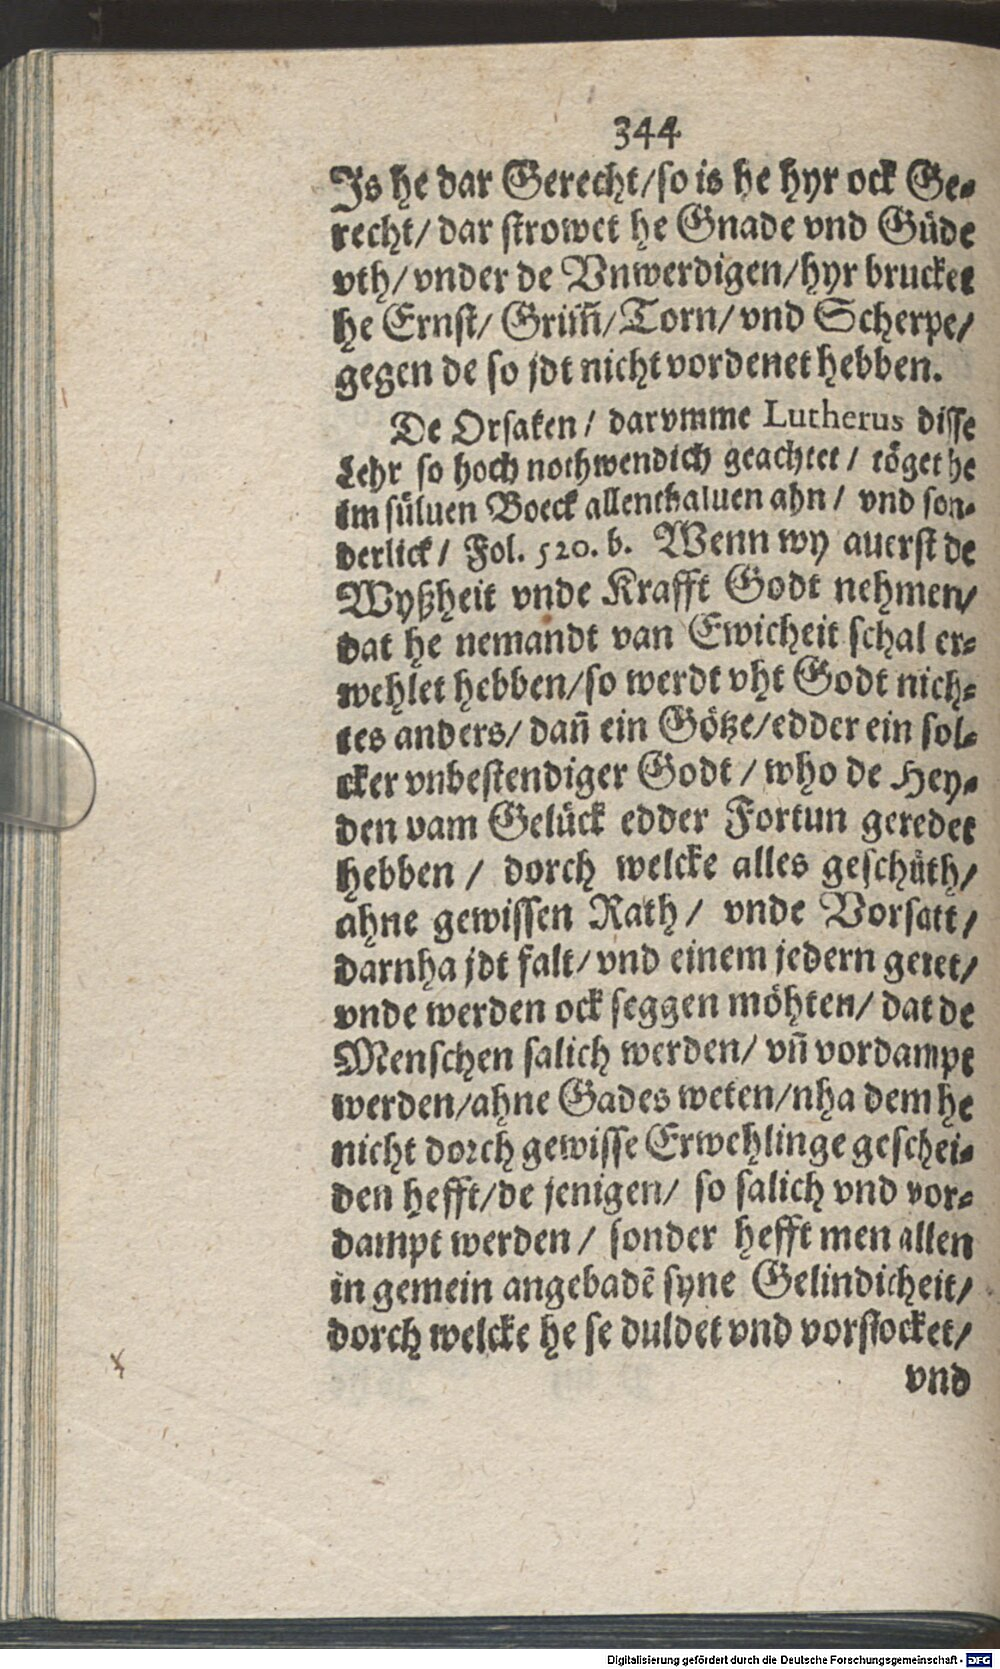 344
Js he dar Gerecht/so is he hyr ock Ge-
recht/ dar strowet he Gnade vnd Güde
vth/ vnder de Vnwerdigen/hyr brucket
he Ernst/ Grim̃/ Torn/ vnd Scherpe/
gegen de so jdt nicht vordenet hebben.
De Orsaken/ darvmme Lutherus disse
Lehr so hoch nothwendich geachtet/ töget he
im süluen Boeck allenthaluen ahn/ vnd son-
derlick/ Fol. 520. b. Wenn wy auerst de
Wyßheit vnde Krafft Godt nehmen/
dat he nemandt van Ewicheit schal er-
wehlet hebben/so werdt vht Godt nich-
tes anders/ dañ ein Götze/edder ein sol-
cker vnbestendiger Godt/ who de Hey-
den vam Gelück edder Fortun geredet
hebben/ dorch welcke alles geschüth/
ahne gewissen Rath/ vnde Vorsatt/
darnha jdt falt/ vnd einem jedern geret/
vnde werden ock seggen möhten/ dat de
Menschen salich werden/ vñ vordampt
werden/ahne Gades weten/nha dem he
nicht dorch gewisse Erwehlinge geschei-
den hefft/de jenigen/ so salich vnd vor-
dampt werden/ sonder hefft men allen
in gemein angebadẽ syne Gelindicheit/
dorch welcke he se duldet vnd vorstocket/
vnd
Digitalisierung gefördert durch die Deutsche Forschungsgemeinschaft - DFG